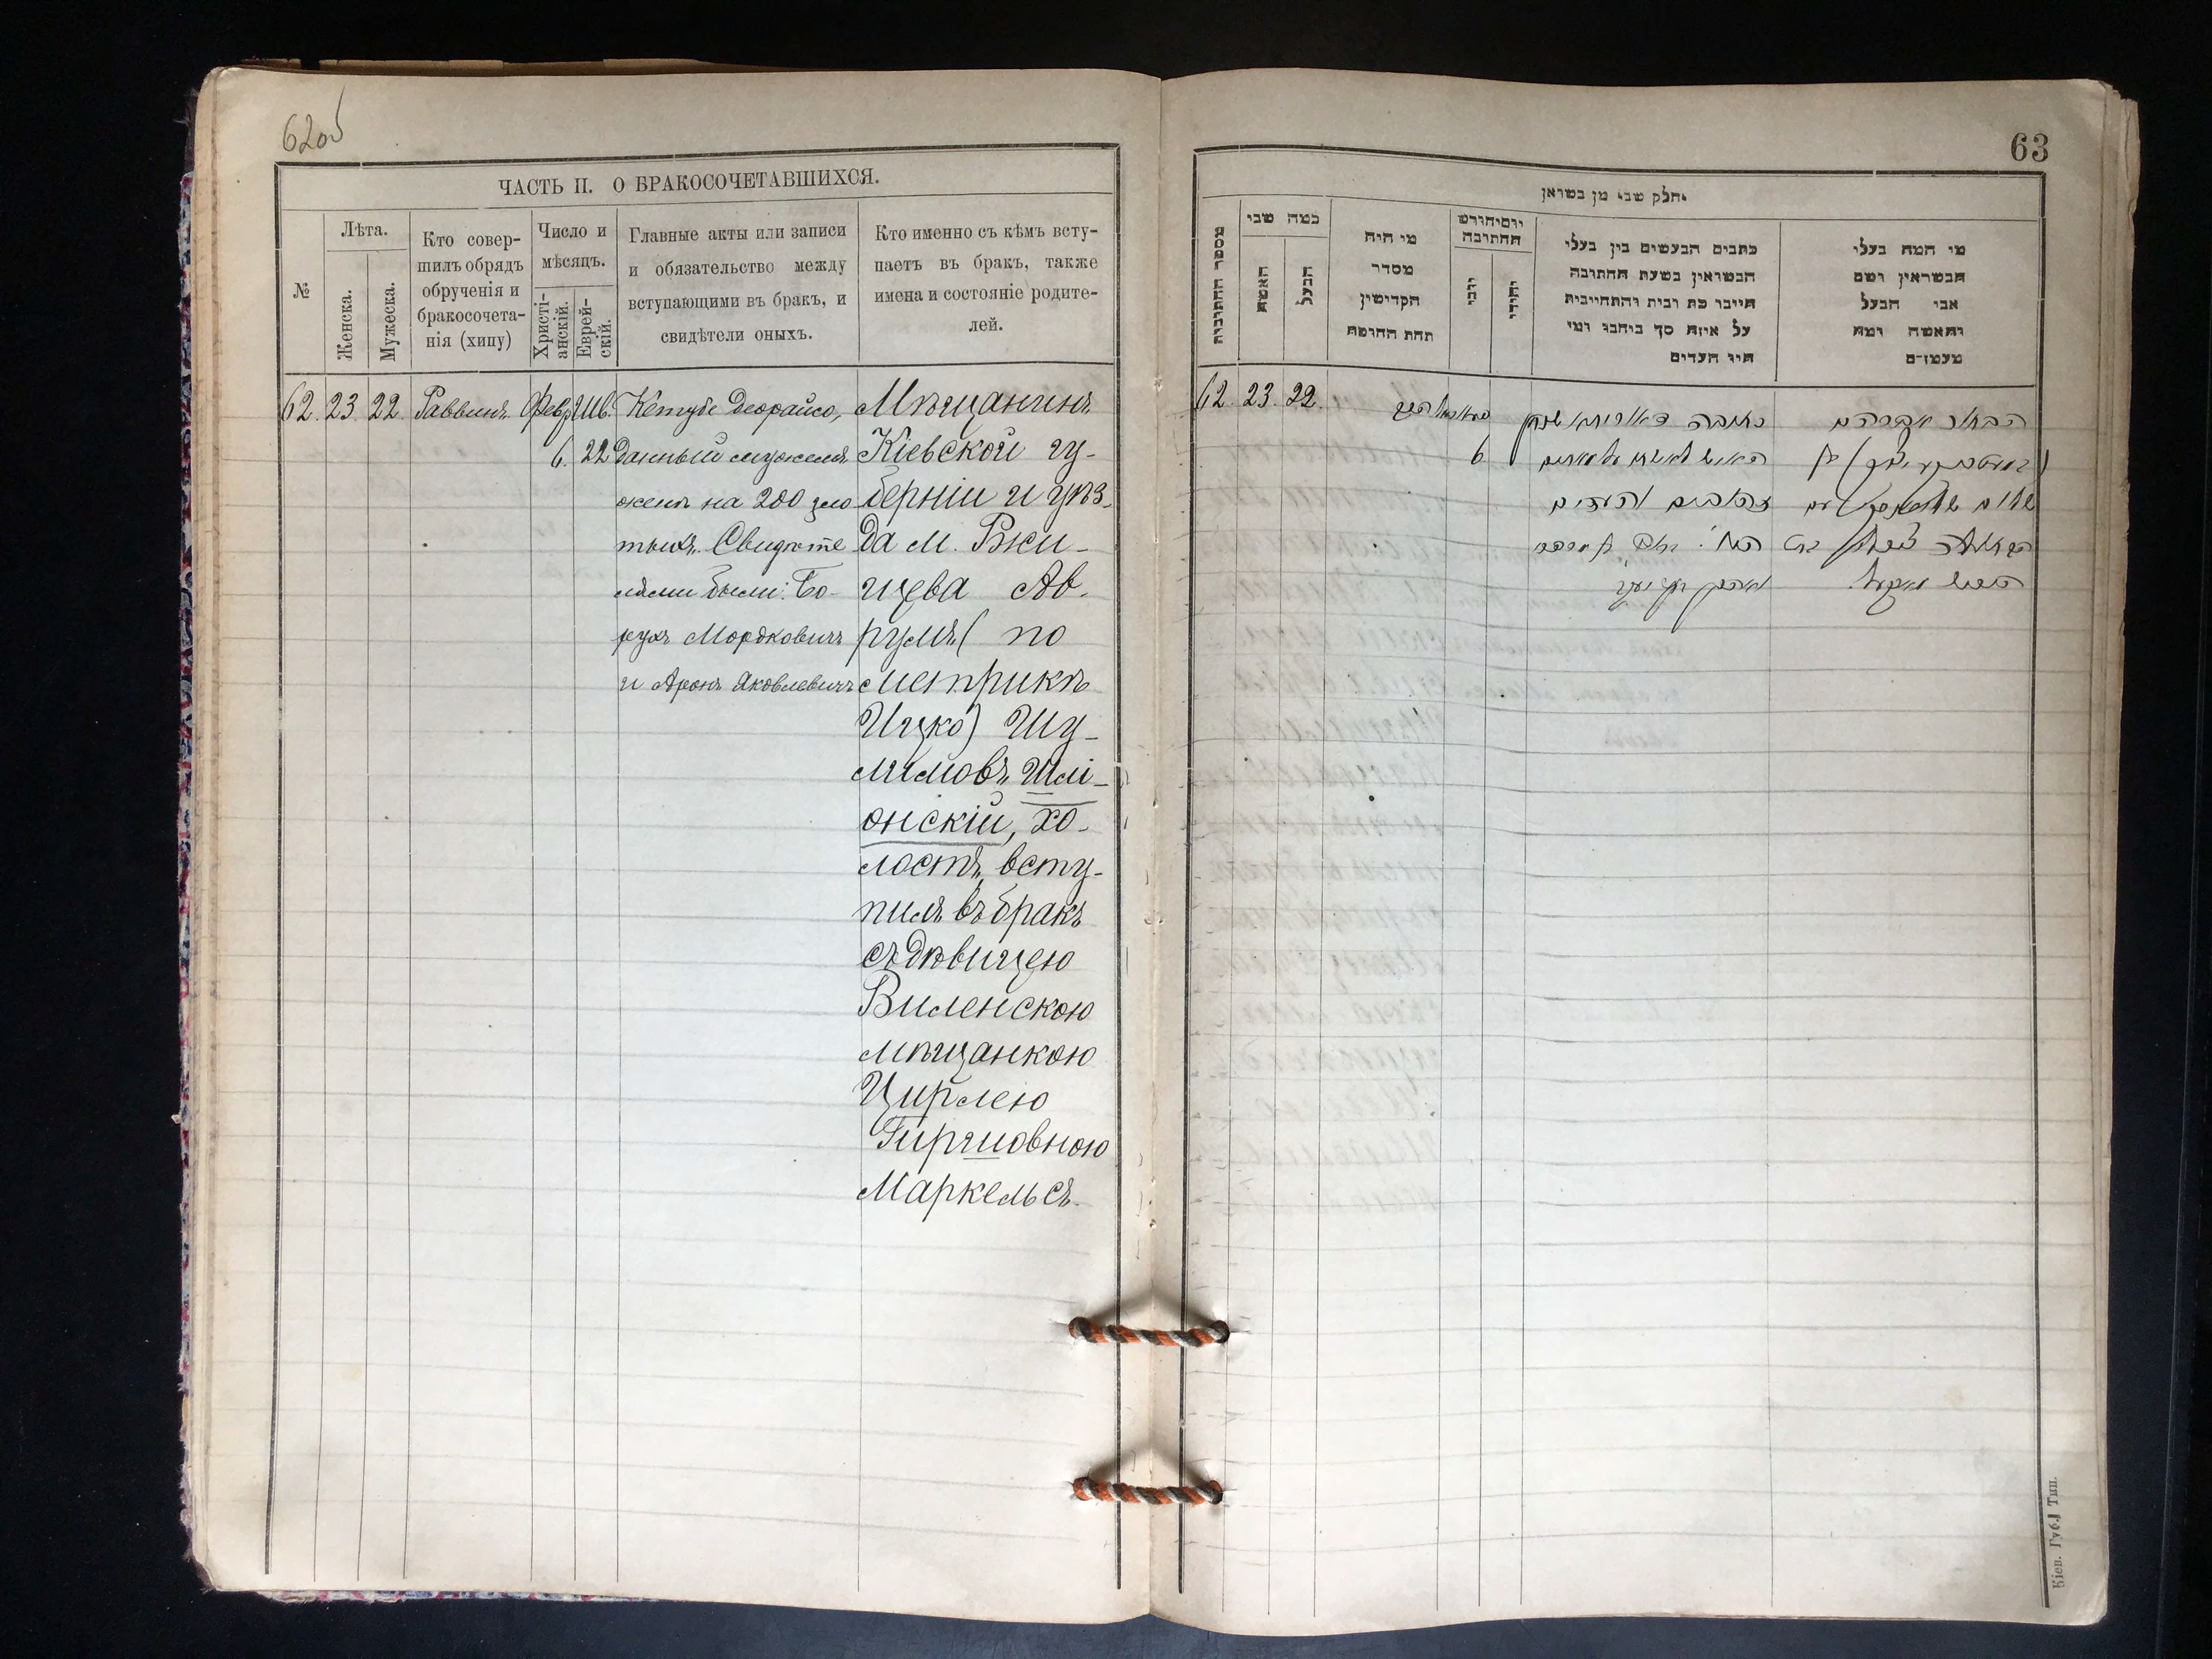 62об
ЧАСТЬ II. О БРАКОСОЧЕТАВШИХСЯ.
№
Лѣта.
Женска.
Мужеска.
Кто совер-
шилъ обрядъ
обрученія и
бракосочета-
нія (хипу)
Число и
мѣсяцъ.
Христі-
анскій.
Еврей-
скій.
Главные акты или записи
и обязательство между
вступающими въ бракъ, и
свидѣтели оныхъ.
Кто именно съ кѣмъ всту-
паетъ въ бракъ, также
имена и состояніе родите-
лей.
62. 23. 22. Раввинъ Февр. Шв.
6. 22
Кетубе деорайсо,
данный мужемъ
женѣ на 200 зло
тыхъ. Свидѣте
лями были: Бо-
рухъ Мордковичъ
и Аронъ Яковлевичъ
Мѣщанинъ
Кіевской гу-
берніи и уѣз-
да м. Ржи-
щева Ав-
румъ (по
метрикѣ
Ицко) Шу-
лимовъ Шлі-
онскій, хо-
лостъ, всту-
пилъ въ бракъ
съ дѣвицею
Виленскою
мѣщанкою
Цирлею
Гиршовною
Маркельсъ.
63
חלק שני מן נשואין
מספר החתונות
כמה שני
האשה
הבעל
מי היה
מסדר
הקדישין
תחת החופה
יום וחודש
החתונה
יוני
יהודי
כתבים הנעשים בין בעלי
הנשואין בשעת החתונה
חייבו כת ובית והתחייבות
על איזה סך כיתבו ומי
היו העדים
מי המה בעלי
הנשואין ושם
אבי הבעל
והאשה ומה
מעמדם
62. 23. 22.
6
הבחור אברהם
כתובה דאורייתא
Кіев. Губ. Тип.